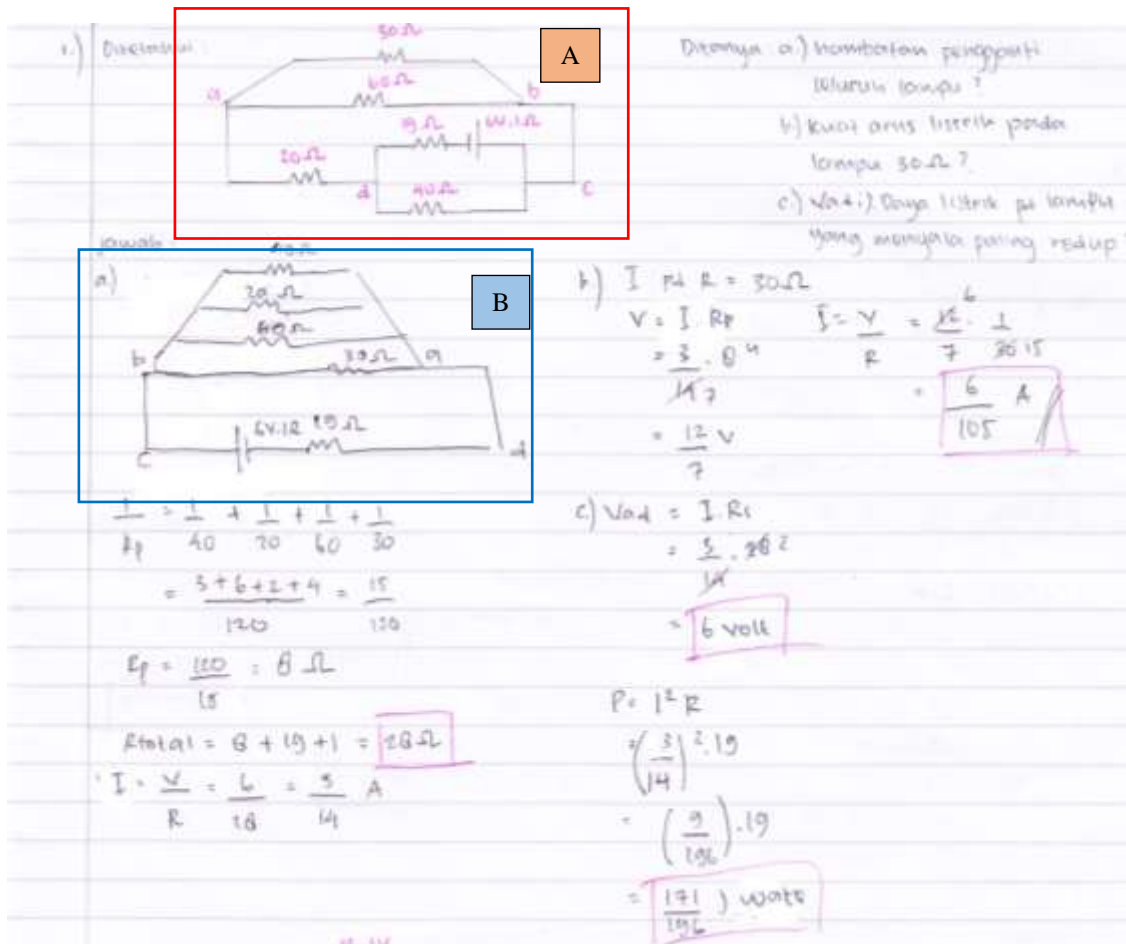 1.) Diketahui :
30Ω
A
60Ω
a
b
9Ω
6V.1Ω
20Ω
d
40Ω
c
Ditanya a.) hambatan pengganti
seluruh lampu ?
b) kuat arus listrik pada
lampu 30Ω ?
c.) Vad i) Daya listrik pd lampu
yang menyala paling redup ?
jawab :
a)
20 Ω
B
60Ω
b
30Ω
a
6V.1Ω
19Ω
c
d
1/Rp = 1/40 + 1/20 + 1/60 + 1/30
= 3+6+2+4/120 = 15/120
Rp = 120/15 = 8 Ω
Rtotal = 8 + 19 + 1 = 28Ω
I = V/R = 6/28 = 3/14 A
b) I pd R = 30Ω
V = I. Rp
= 3/14 7 . 8 4
= 12/7 V
I = V/R = 12 6/7 . 1/30 15
= 6/105 A
c) Vad = I.Rs
= 3/14 . 28 2
= 6 volt
P = I² R
= (3/14)² . 19
= (9/196) . 19
= 171/196 ) watt